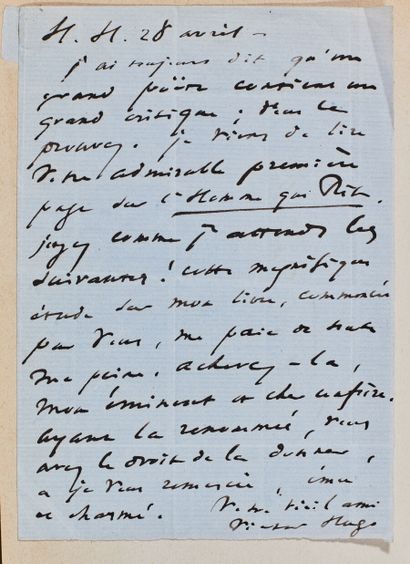 H. H. 28 avril –
j'ai toujours dit qu'un
grand poëte contient un
grand critique ; vous le
prouvez. je viens de lire
votre admirable première
page sur l'Homme qui Rit.
jugez comme j'attends les
suivantes ! cette magnifique
étude sur mon livre, commencée
par vous, me paie de toute
ma peine. achevez-la,
mon éminent et cher confrère.
ayant la renommée, vous
avez le droit de la donner,
et je vous remercie, ému
et charmé.
Votre vieil ami
Victor Hugo